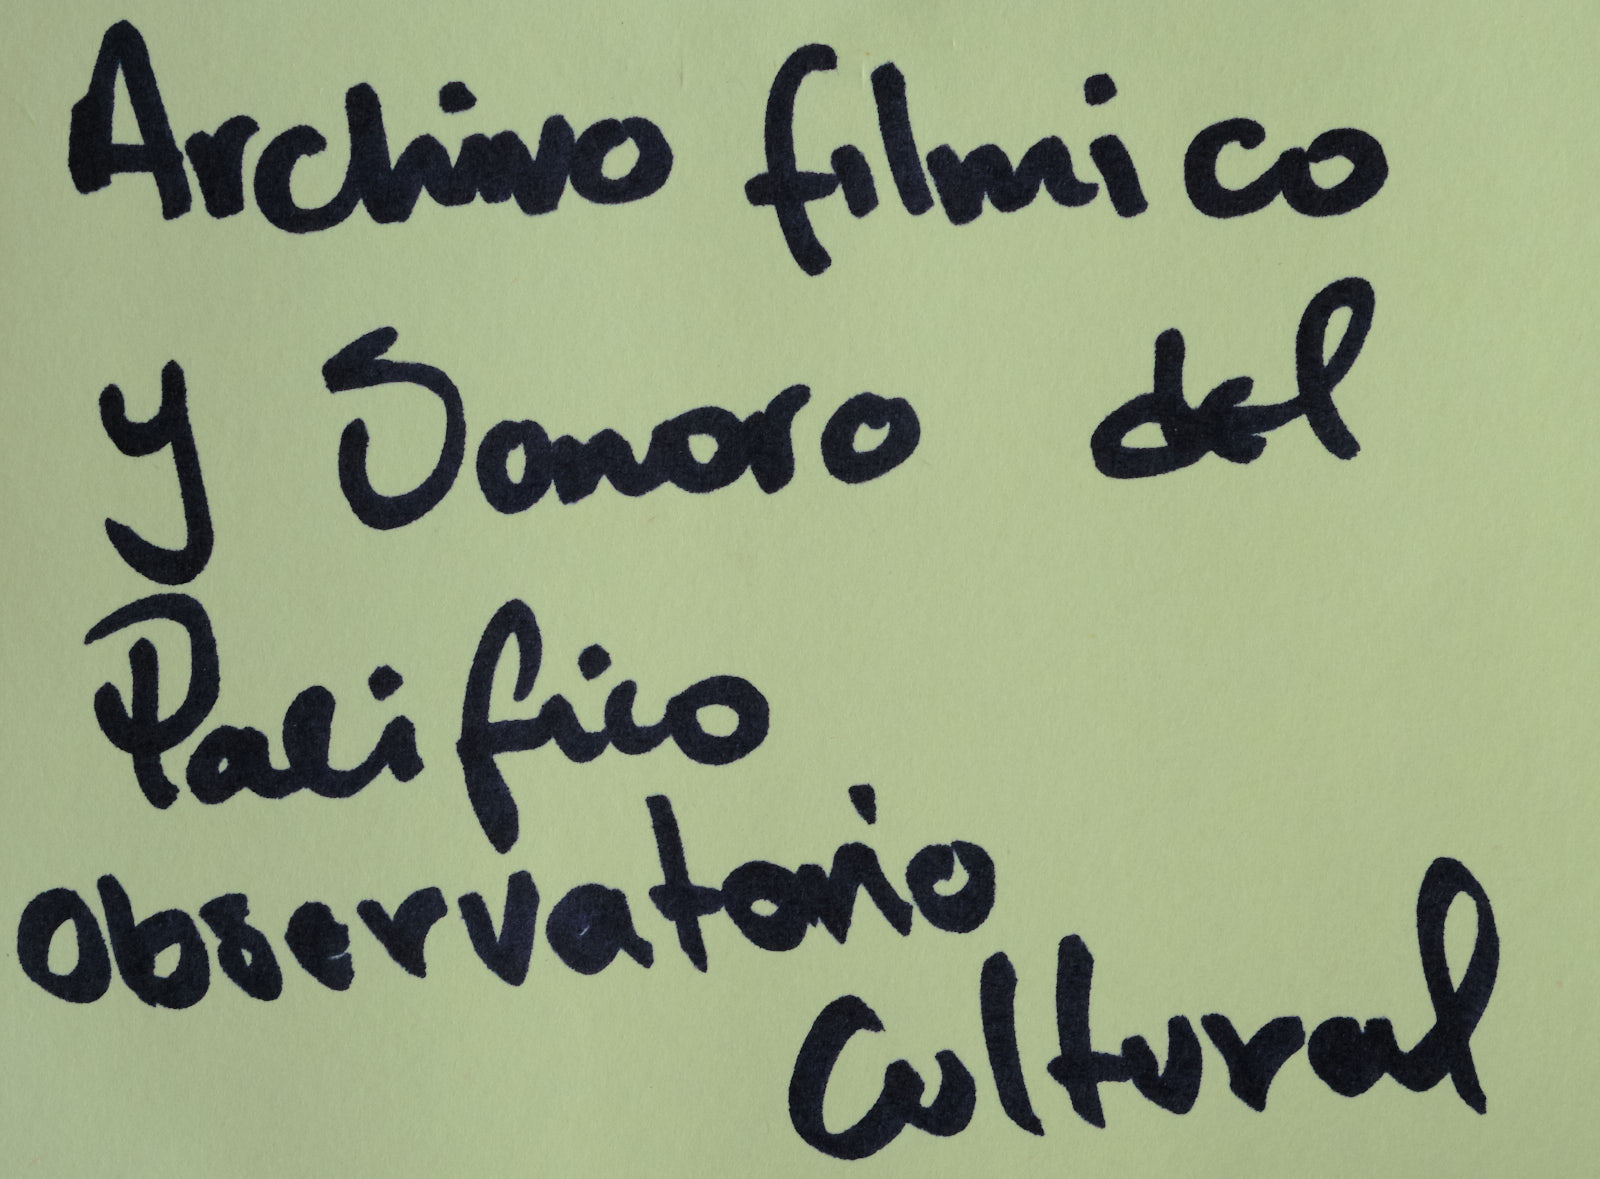 Archivo filmico
y Sonoro del
Pacifico
Observatorio
Cultural